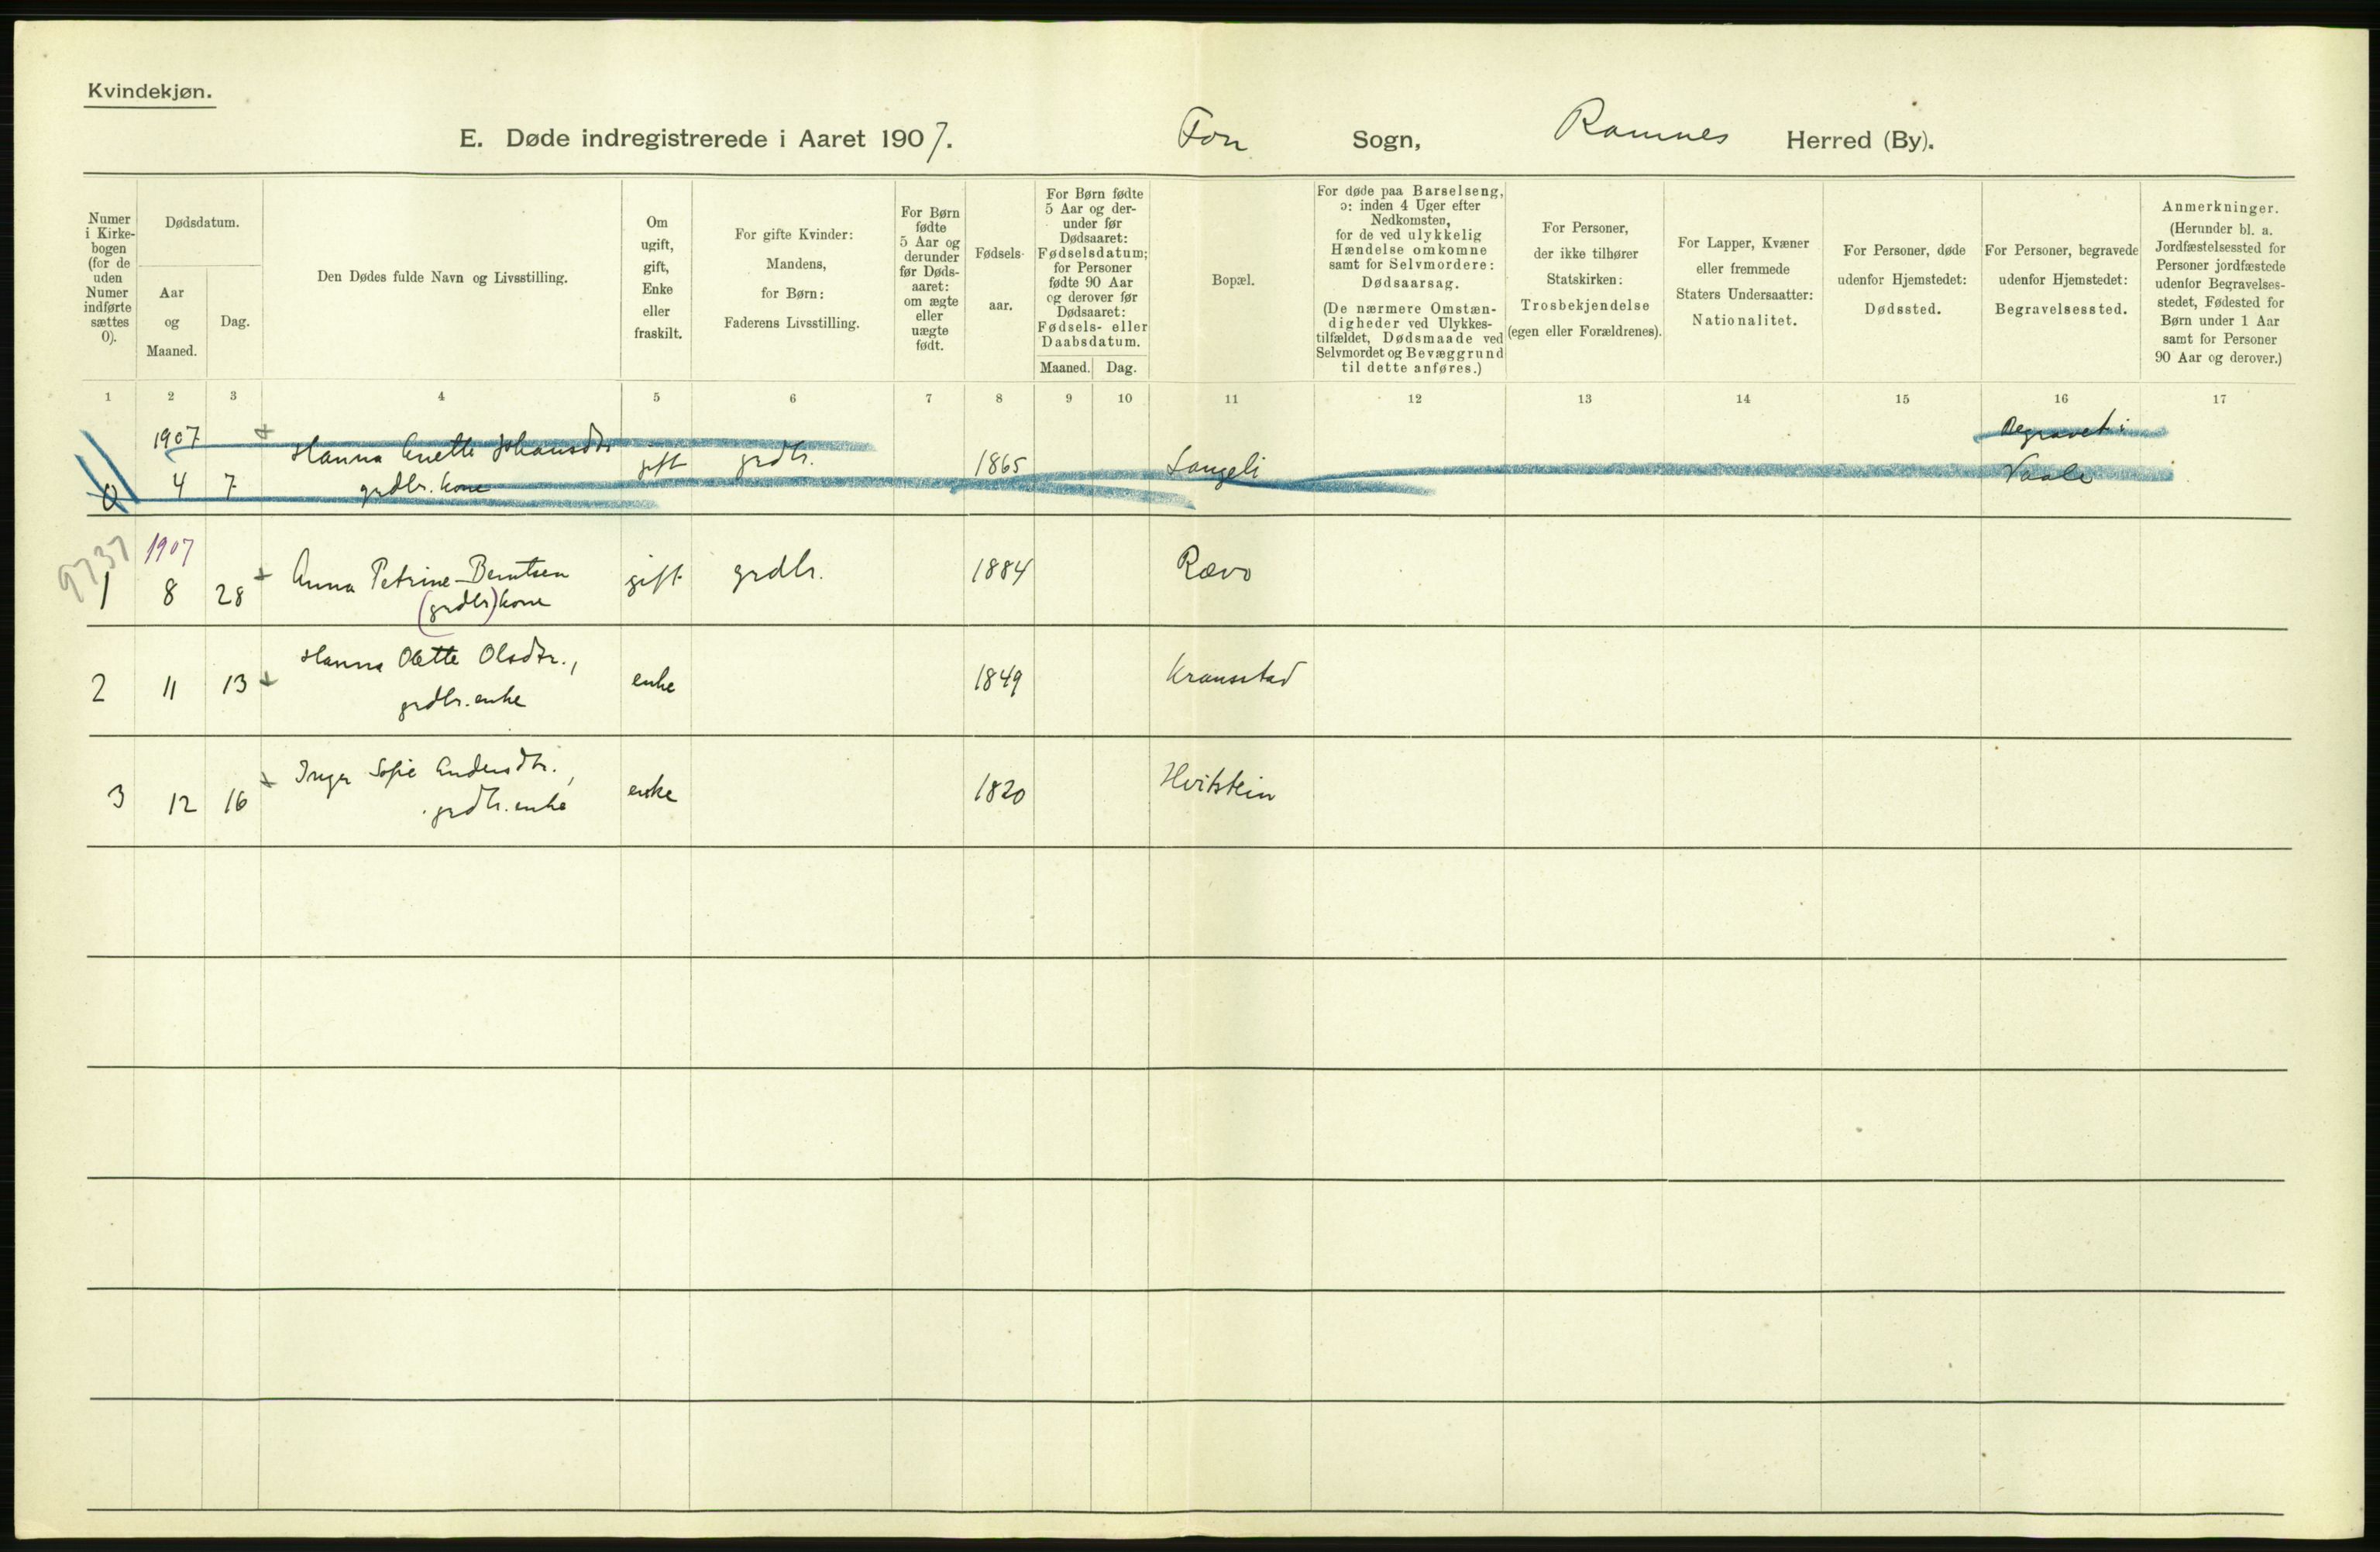 Kvindekjøn.
E. Døde indregistrerede i Aaret 1907. Fon Sogn, Ramnes Herred (By).
Numer
i Kirke-
bogen
(for de
uden
Numer
indførte
sættes
0).
Dødsdatum.
Aar
og
Maaned.
Dag.
Den Dødes fulde Navn og Livsstilling.
Om
ugift,
gift,
Enke
eller
fraskilt.
For gifte Kvinder:
Mandens,
for Børn:
Faderens Livsstilling.
For Børn
fødte
5 Aar og
derunder
før Døds-
aaret:
om ægte
eller
uægte
født.
Fødsels-
aar.
For Børn fødte
5 Aar og der-
under før
Dødsaaret:
Fødselsdatum;
for Personer
fødte 90 Aar
og derover før
Dødsaaret:
Fødsels- eller
Daabsdatum.
Maaned. Dag.
Bopæl.
For døde paa Barselseng,
ɔ: inden 4 Uger efter
Nedkomsten,
for de ved ulykkelig
Hændelse omkomne
samt for Selvmordere:
Dødsaarsag.
(De nærmere Omstæn-
digheder ved Ulykkes-
tilfældet, Dødsmaade ved
Selvmordet og Bevæggrund
til dette anføres.)
For Personer,
der ikke tilhører
Statskirken:
Trosbekjendelse
(egen eller Forældrenes).
For Lapper, Kvæner
eller fremmede
Staters Undersaatter:
Nationalitet.
For Personer, døde
udenfor Hjemstedet:
Dødssted.
For Personer, begravede
udenfor Hjemstedet:
Begravelsessted.
Anmerkninger.
(Herunder bl. a.
Jordfæstelsessted for
Personer jordfæstede
udenfor Begravelses-
stedet, Fødested for
Børn under 1 Aar
samt for Personer
90 Aar og derover.)
1 2 3 4 5 6 7 8 9 10 11 12 13 14 15 16 17
1907 Hanna Anette Johansdtr Begravet i
0 4 7 grdbr. kone gift grdbr. 1865 Langeli Vaale
9737 1907
1 8 28 Anna Petrine Berntsen gift grdbr. 1884 Rævo
(grdbr) kone
Hanna Olette Olsdtr.,
2 11 13 grdbr. enke enke 1849 Kransstad
Inger Sofie Andersdtr.,
3 12 16 grdbr. enke enke 1820 Hvitstein